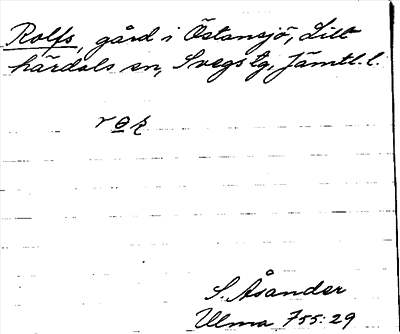 Rolfs, gård i Östansjö, Lill
härdals sn, Svegs tg, Jämtl. l.
r ɵ k
S. Åsander
Ulma 755:29